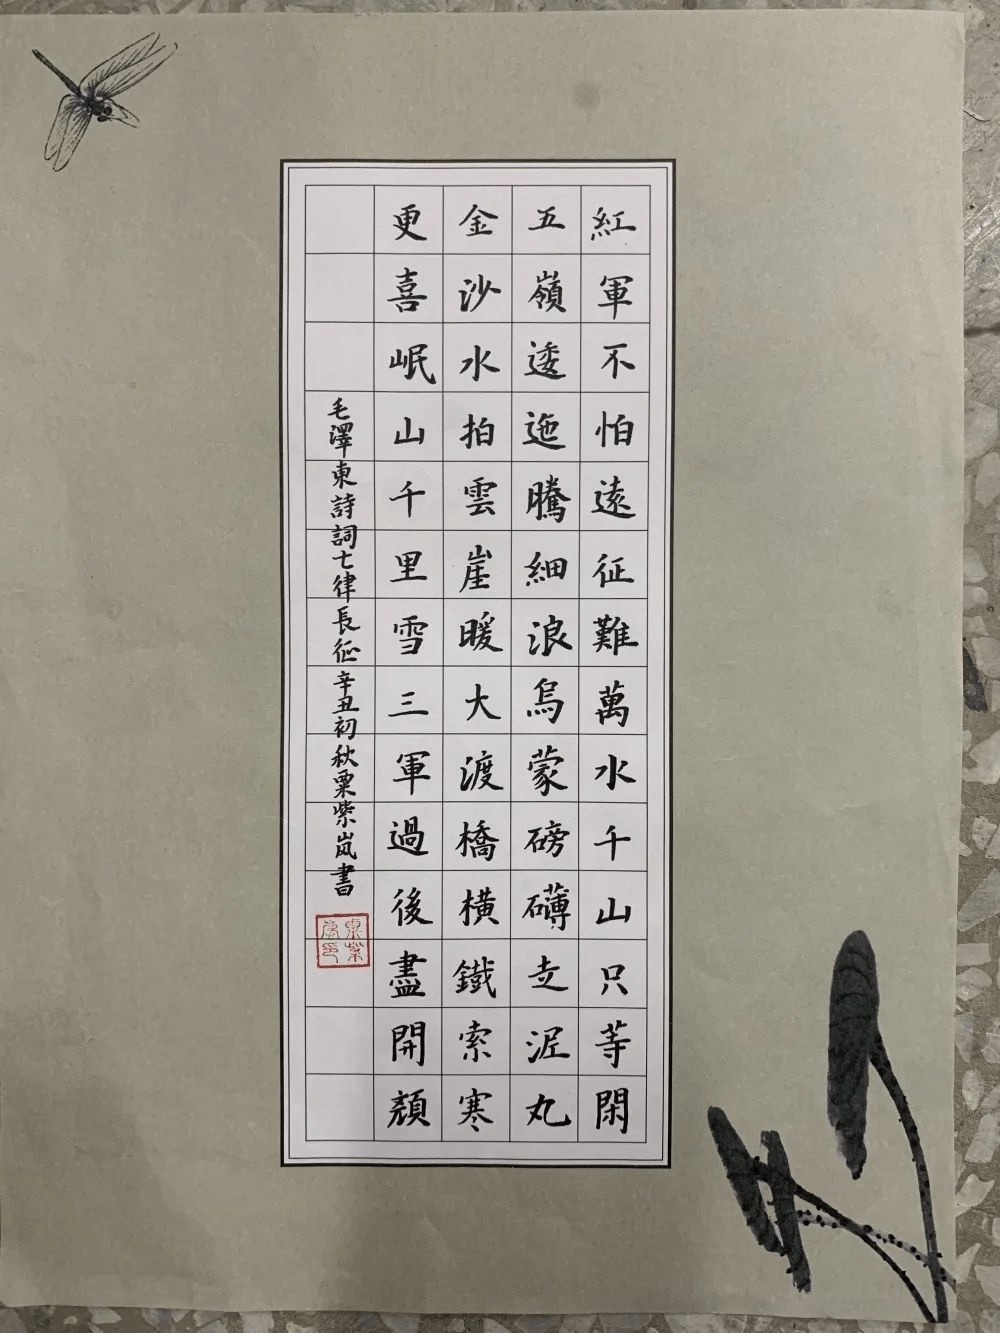 紅軍不怕遠征難萬水千山只等閑
五嶺逶迤騰細浪烏蒙磅礴走泥丸
金沙水拍雲崖暖大渡橋橫鐵索寒
更喜岷山千里雪三軍過後盡開顏
毛澤東詩詞七律長征辛丑初秋粟紫岚書